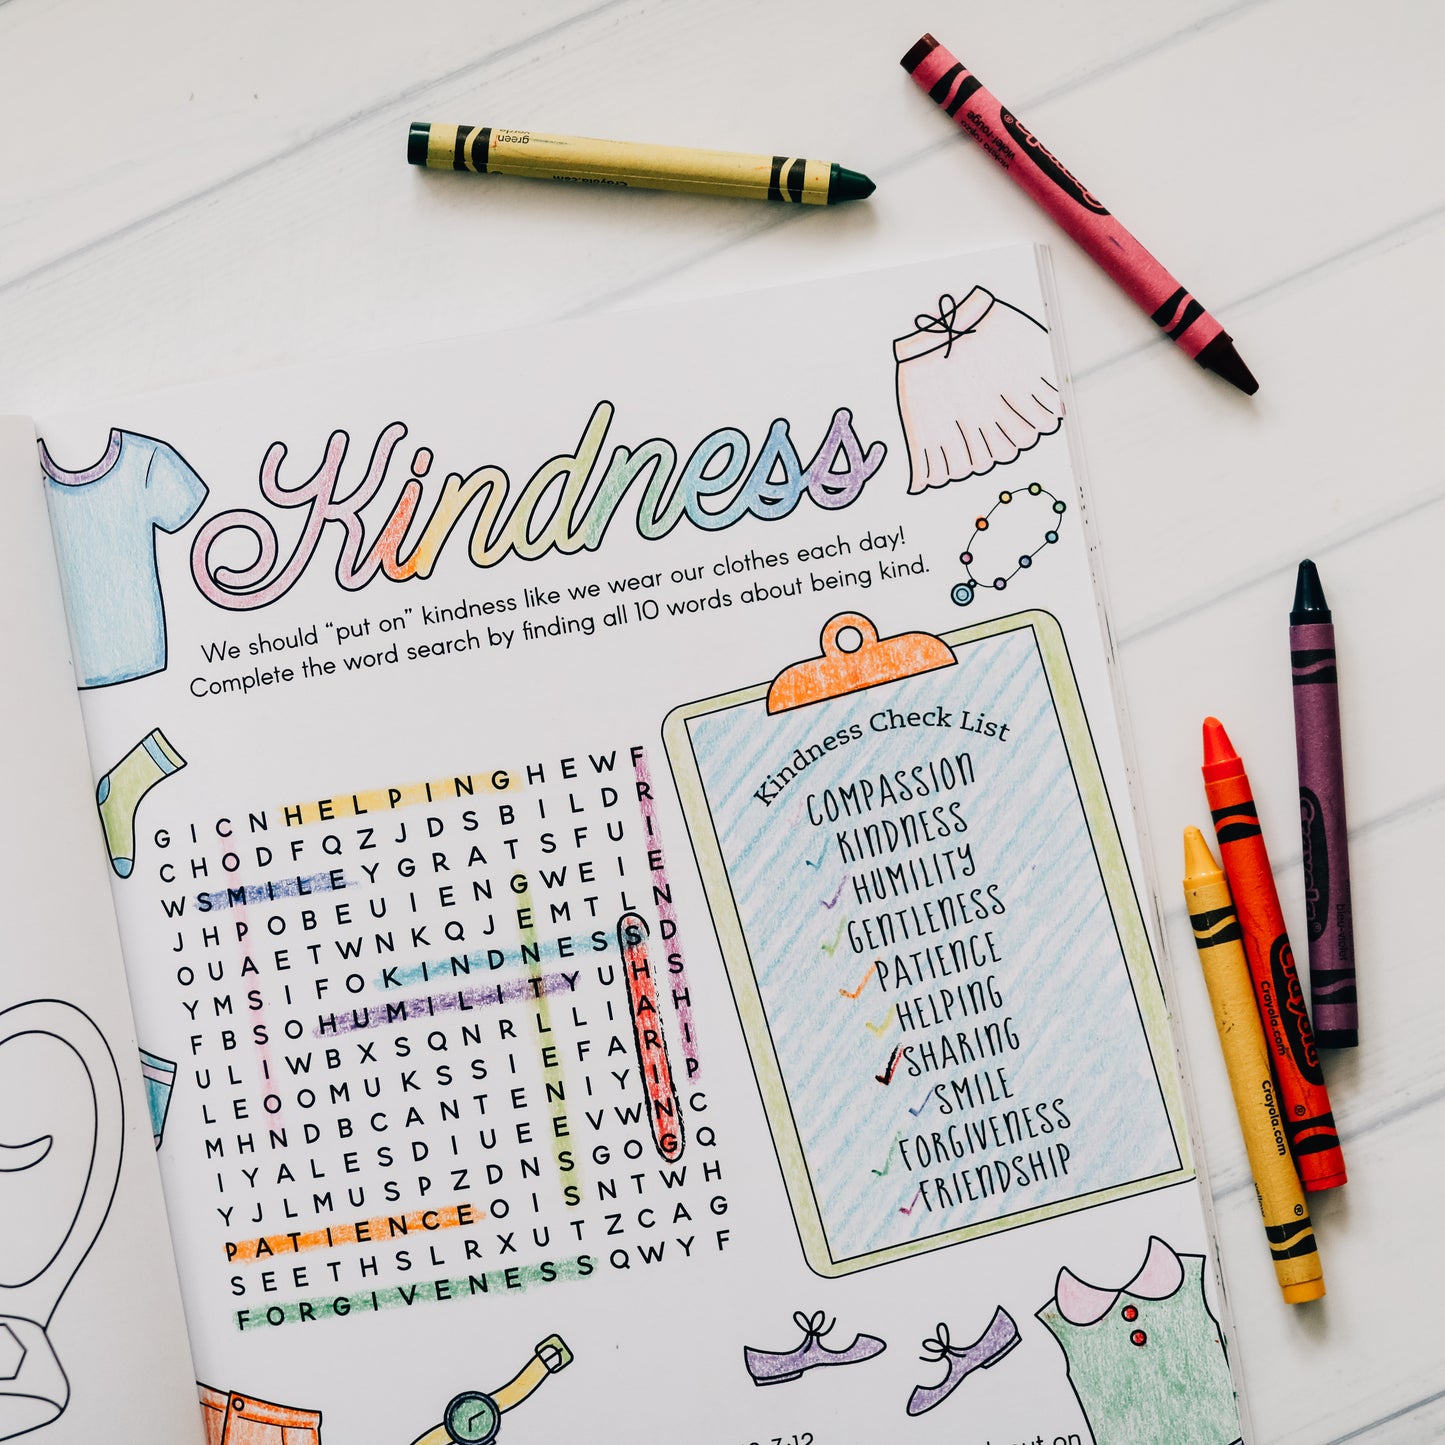 green
verde
Crayola.com
violet-rouge
Kindness
We should “put on” kindness like we wear our clothes each day!
Complete the word search by finding all 10 words about being kind.
G I C N H E L P I N G H E W F
C H O D F Q Z J D S B I L D R
W S M I L E Y G R A T S F U I
J H P O B E U I E N G W E I E
O U A E T W N K Q J E M T L N
Y M S I F O K I N D N E S S D
F B S O H U M I L I T Y U H S
U L I W B X S Q N R L L I A H
L E O O M U K S S I E F A R I
M H N D B C A N T E N I Y I P
I Y A L E S D I U E E V W N C
Y J L M U S P Z D N S G O G Q
P A T I E N C E O I S N T W H
S E E T H S L R X U T Z C A G
F O R G I V E N E S S Q W Y F
Kindness Check List
COMPASSION
KINDNESS
HUMILITY
GENTLENESS
PATIENCE
HELPING
SHARING
SMILE
FORGIVENESS
FRIENDSHIP
Crayola
Crayola
Crayola.com
Crayola.com
on